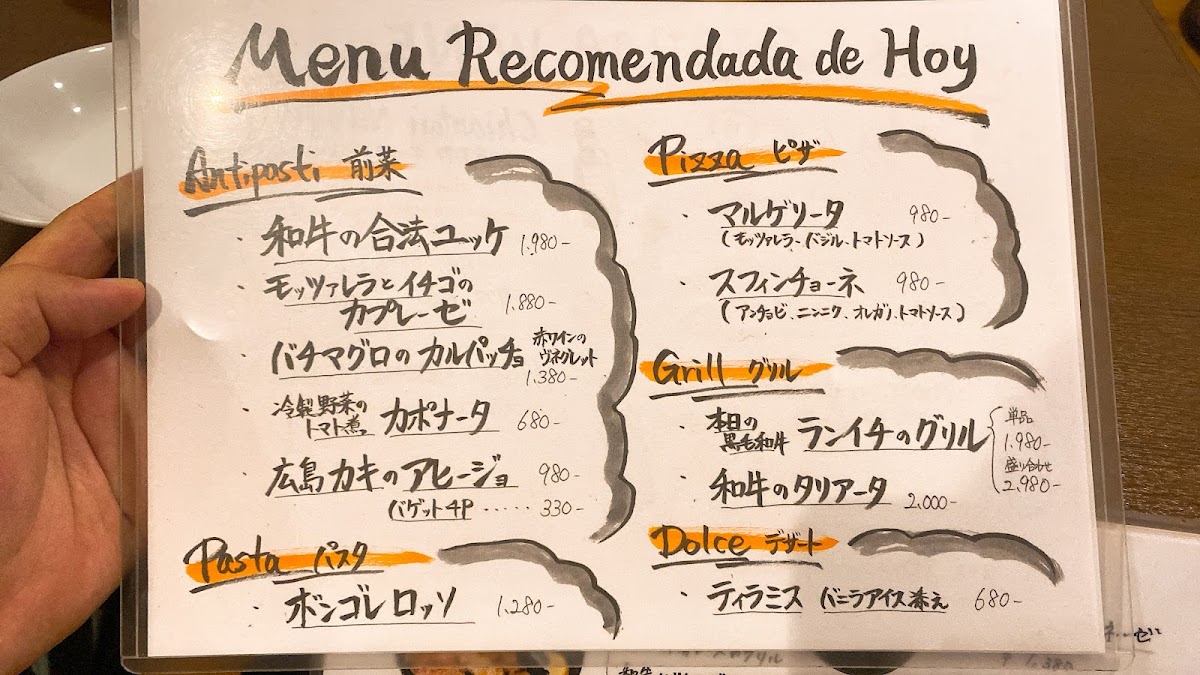 Menu Recomendada de Hoy
Antipasti 前菜
・和牛の合法ユッケ 1,980-
・モッツァレラとイチゴの
カプレーゼ 1,880-
・バチマグロのカルパッチョ 赤ワインの
ヴィネグレット
1,380-
・冷製野菜の
トマト煮 カポナータ 680-
・広島カキのアヒージョ 980-
バゲット4P ‥‥‥ 330-
Pasta パスタ
・ボンゴレロッソ 1,280-
Pizza ピザ
・マルゲリータ 980-
(モッツァレラ、バジル、トマトソース)
・スフィンチョーネ 980-
(アンチョビ、ニンニク、オレガノ、トマトソース)
Grill グリル
・本日の
黒毛和牛 ランイチのグリル
単品
1,980-
盛り合わせ
2,980-
・和牛のタリアータ 2,000-
Dolce デザート
・ティラミス バニラアイス添え 680-